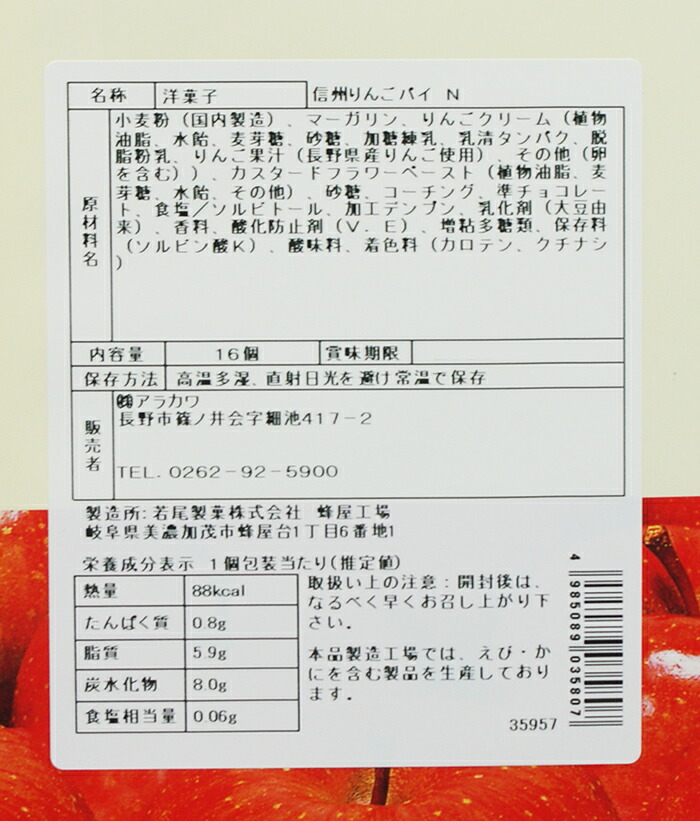 名称 洋菓子 信州りんごパイ N
原材料名
小麦粉（国内製造）、マーガリン、りんごクリーム（植物
油脂、水飴、麦芽糖、砂糖、加糖練乳、乳清タンパク、脱
脂粉乳、りんご果汁（長野県産りんご使用）、その他（卵
を含む））、カスタードフラワーペースト（植物油脂、麦
芽糖、水飴、その他）、砂糖、コーチング、準チョコレー
ト、食塩／ソルビトール、加工デンプン、乳化剤（大豆由
来）、香料、酸化防止剤（V．E）、増粘多糖類、保存料
（ソルビン酸K）、酸味料、着色料（カロテン、クチナシ
）
内容量 16個 賞味期限
保存方法 高温多湿、直射日光を避け常温で保存
販売者
㈱アラカワ
長野市篠ノ井会字細池417－2
TEL．0262－92－5900
製造所:若尾製菓株式会社 蜂屋工場
岐阜県美濃加茂市蜂屋台1丁目6番地1
栄養成分表示 1個包装当たり(推定値)
熱量 88kcal
たんぱく質 0.8g
脂質 5.9g
炭水化物 8.0g
食塩相当量 0.06g
取扱い上の注意：開封後は、
なるべく早くお召し上がり下
さい。
本品製造工場では、えび・か
にを含む製品を生産しており
ます。
4 985089 035807
35957